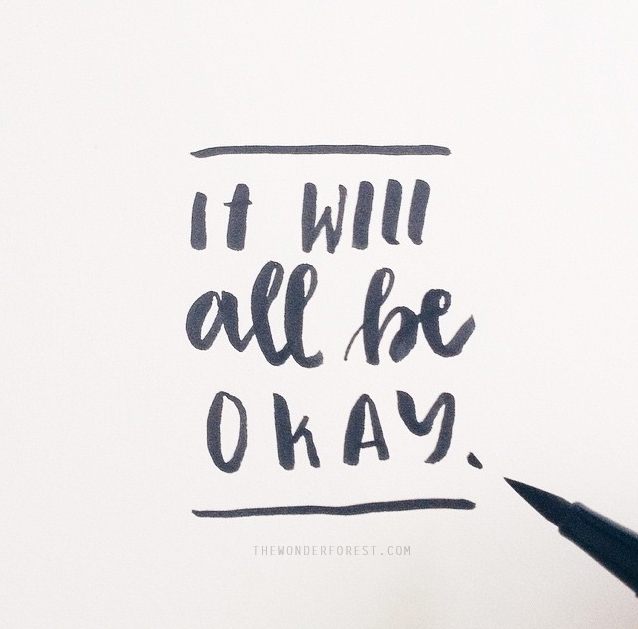 It will
all be
OKAY.
THEWONDERFOREST.COM